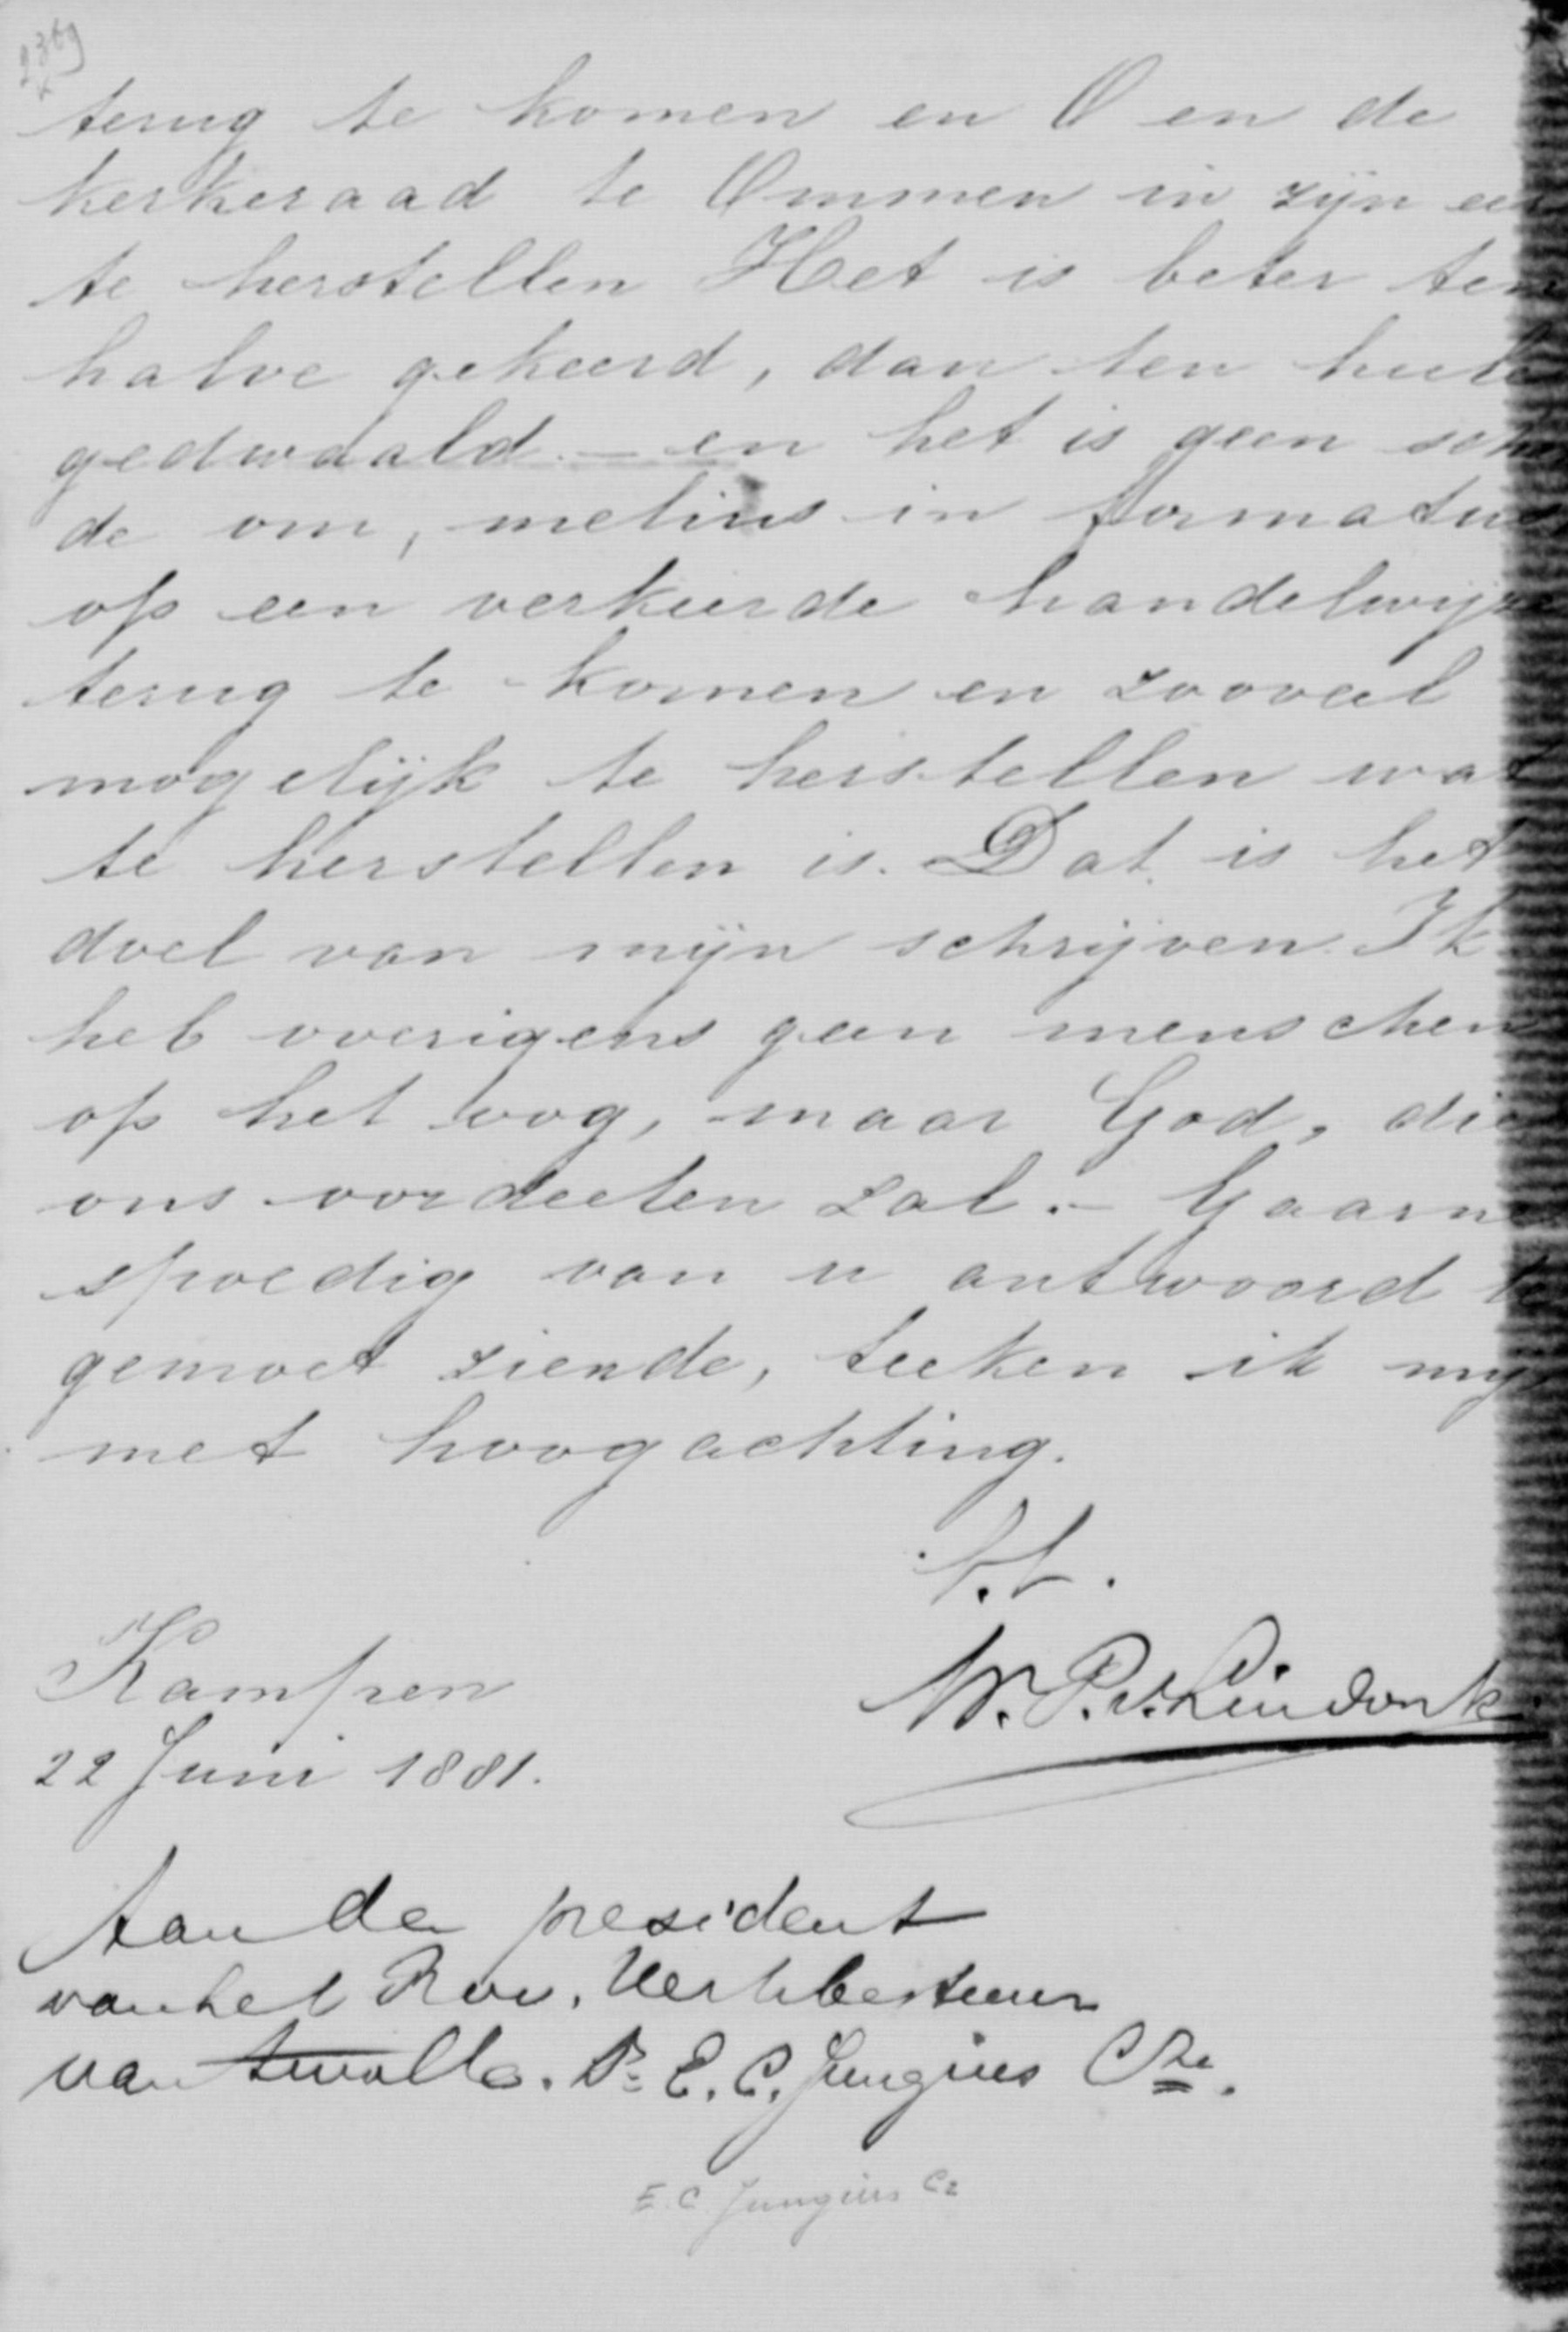 2369
terug te komen en O en de
kerkeraad te Ommen in zijn eer
te herstellen Het is beter ten
halve gekeerd, dan ten heele
gedwaald. – en het is geen schan
de om, melius in formatus
op een verkeerde handelwijze
terug te komen en zooveel
mogelijk te herstellen wat
te herstellen is. Dat is het
doel van mijn schrijven. Ik
heb overigens geen menschen
op het oog, maar God, die
ons oordeelen zal. – Gaarne
spoedig van u antwoord te
gemoet ziende, teeken ik mij
met hoogachting.
Kampen
22 Juni 1881.
Aan de president
van het Prov. Kerkbestuur
van Zwolle. Ds E. C. Jungius Cz.
E. C. Jungius Cz